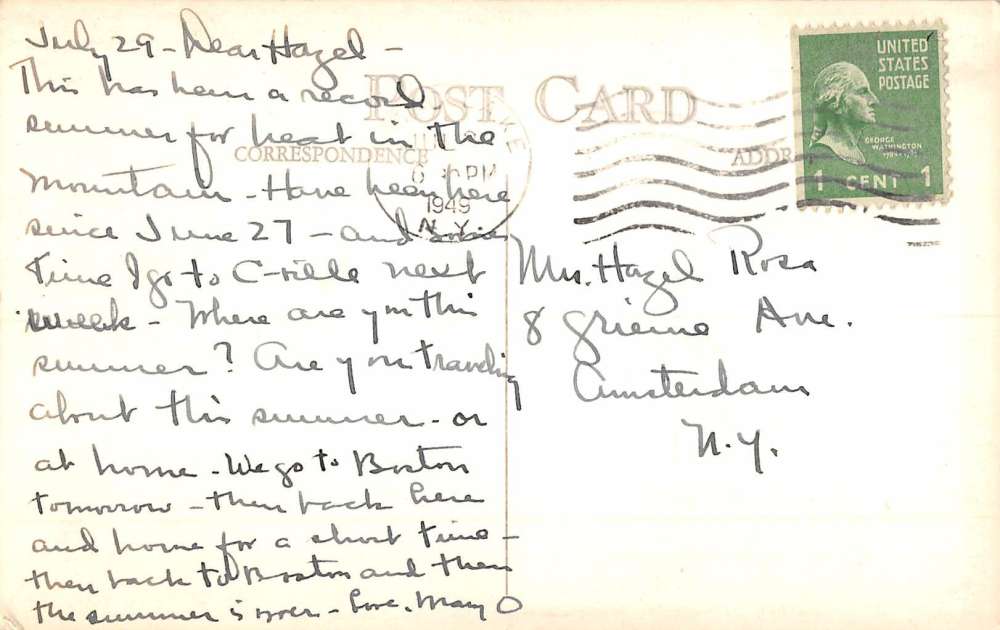 July 29 - Dear Hazel -
This has been a record
summer for heat in the
Mountain - Have been here
since June 27 - and
time I go to C-ville next
week - Where are you this
summer? Are you traveling
about this summer - or
at home - We go to Boston
tomorrow - then back here
and home for a short time -
then back to Boston and then
the summer is over - Love, Mary O
POST CARD
CORRESPONDENCE
ADDR
PM
1949
N.Y.
UNITED
STATES
POSTAGE
GEORGE
WASHINGTON
1 CENT 1
Mrs. Hazel Rosa
8 Grieme Ave.
Amsterdam
N.Y.